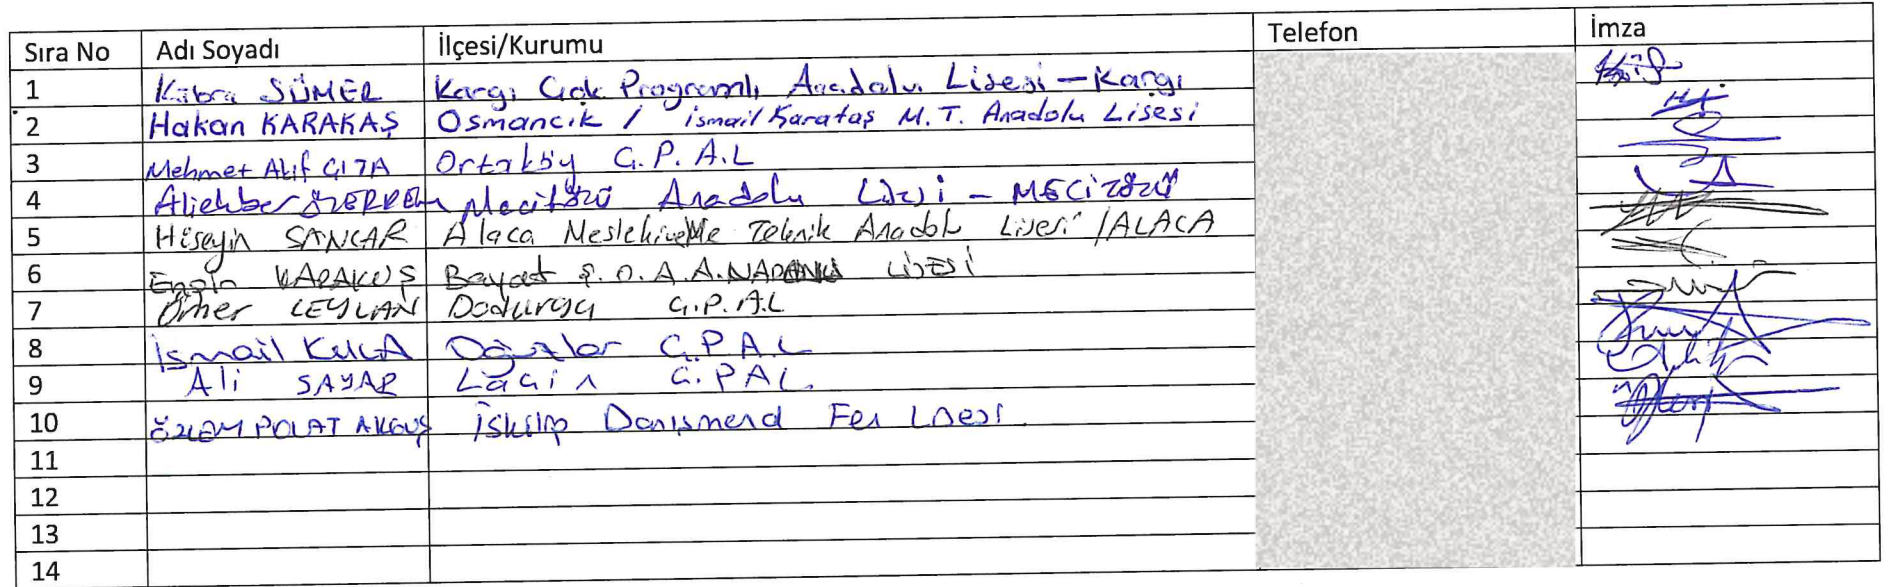 Sıra No Adı Soyadı İlçesi/Kurumu Telefon İmza
1 Kübra SÜMER Kargı Çok Programlı Anadolu Lisesi - Kargı
2 Hakan KARAKAŞ Osmancık / ismail Karataş M. T. Anadolu Lisesi
3 Mehmet Akif Ortaköy Ç.P.A.L
4 Aliekber Mecitözü Anadolu Lisesi - MECİTÖZÜ
5 Hüseyin SANCAR Alaca Meslekive Teknik Anadolu Lisesi /ALACA
6 Engin KARAKUŞ Bayat LİSESİ
7 Ömer CEYLAN Dodurga Ç.P.A.L
8 İsmail Oğuzlar Ç.P.A.L
9 Ali SAYAR Laçin Ç.PAL.
10 ÖZLEM POLAT AKKUŞ İskilip Danişmend Fen Lisesi
11
12
13
14